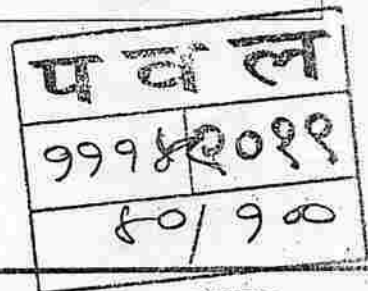 प व ल
१११४ २०११
४०/१००